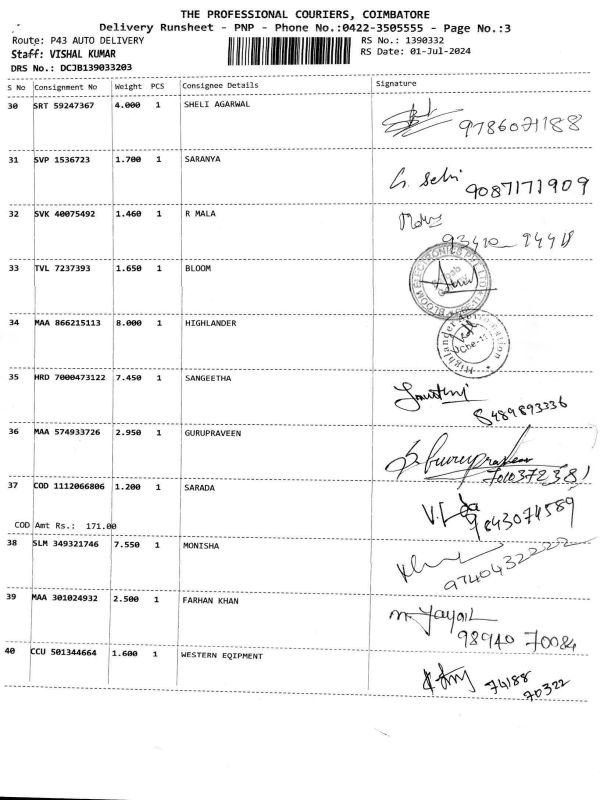 THE PROFESSIONAL COURIERS, COIMBATORE
Delivery Runsheet - PNP - Phone No.:0422-3505555 - Page No.:3
Route: P43 AUTO DELIVERY RS No.: 1390332
Staff: VISHAL KUMAR RS Date: 01-Jul-2024
DRS No.: DCJB139033203
S No Consignment No Weight PCS Consignee Details Signature
30 SRT 59247367 4.000 1 SHELI AGARWAL
9786071188
31 SVP 1536723 1.700 1 SARANYA
9087171909
32 SVK 40075492 1.460 1 R MALA
93410 94418
33 TVL 7237393 1.650 1 BLOOM
BLOOM ELECTRONICS PVT LTD
34 MAA 866215113 8.000 1 HIGHLANDER
Highlander
35 HRD 7000473122 7.450 1 SANGEETHA
8489893336
36 MAA 574933726 2.950 1 GURUPRAVEEN
Gurupraveen
7010372381
37 COD 1112066806 1.200 1 SARADA
9843074589
COD Amt Rs.: 171.00
38 SLM 349321746 7.550 1 MONISHA
9740432222
39 MAA 301024932 2.500 1 FARHAN KHAN
98940 70084
40 CCU 501344664 1.600 1 WESTERN EQIPMENT
74188
70322